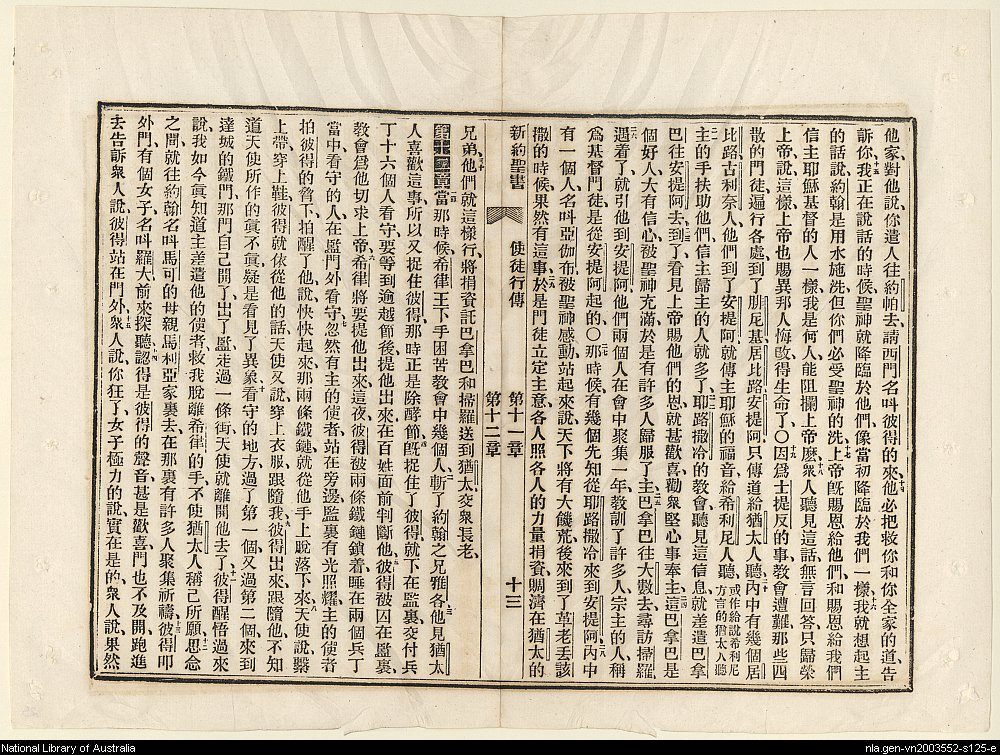 他家、對他說、你遣人往約帕去、請西門名呌彼得的來、他必把救你和你全家的道告
訴你、我正在說話的時候、聖神就降臨於他們、像當初降臨於我們一樣、我就想起主
的話說、約翰是用水施洗、但你們必受聖神的洗、上帝旣賜恩給他們、和賜恩給我們
信主耶穌基督的人一樣、我是何人、能阻攔上帝麽、衆人聽見這話、無言回答、只歸榮
上帝、說、這樣、上帝也賜異邦人悔改得生命了、〇因爲士提反的事、敎會遭難、那些四
散的門徒、遍行各處、到了腓尼基居比路安提阿、只傳道給猶太人聽、內中有幾個居
比路古利奈人、他們到了安提阿、就傳主耶穌的福音、給希利尼人聽、或作給說希利尼方言的猶太人聽
主的手扶助他們、信主歸主的人就多了、耶路撒冷的敎會、聽見這信息、就差遣巴拿
巴往安提阿去、到了、看見上帝賜他們的恩、就甚歡喜、勸衆堅心事奉主、這巴拿巴是
個好人、大有信心、被聖神充滿、於是有許多人歸服了主、巴拿巴往大數去、尋訪掃羅、
遇着了、就引他到安提阿、他們兩個人在會中聚集一年、敎訓了許多人、宗主的人稱
爲基督門徒、是從安提阿起的、〇那時候有幾個先知、從耶路撒冷來到安提阿、內中
有一個人、名呌亞伽布、被聖神感動、站起來說、天下將有大饑荒、後來到了革老丢該
撒的時候、果然有這事、於是門徒立定主意、各人照各人的力量捐資、賙濟在猶太的
新約聖書 使徒行傳 第十一章 第十二章 十三
兄弟、他們就這樣行、將捐資託巴拿巴和掃羅、送到猶太、交衆長老、
第十二章當那時候、希律王下手困苦敎會中幾個人、斬了約翰之兄雅各、他見猶太
人喜歡這事、所以又捉住彼得、那時正是除酵節、旣捉住了彼得、就下在監裏、交付兵
丁十六個人看守、要等到逾越節後、提他出來、在百姓面前判斷他、彼得被囚在監裏、
敎會爲他切求上帝、希律將要提他出來、這夜彼得被兩條鐵鏈鎖着、睡在兩個兵丁
當中、看守的人在監門外看守、忽然有主的使者、站在旁邊、監裏有光照耀、主的使者
拍彼得的脅下、拍醒了他、說、快快起來、那兩條鐵鏈、就從他手上脫落下來、天使說、繫
上帶、穿上鞋、彼得就依從他的話、天使又說、穿上衣服、跟隨我、彼得出來跟隨他、不知
道天使所作的眞不眞、疑是看見了異象、看守的地方、過了第一個、又過第二個、來到
達城的鐵門、那門自己開了、出了監、走過一條街、天使就離開他去了、彼得醒悟過來
說、我如今眞知道主差遣他的使者、救我脫離希律的手、不使猶太人稱己所願、思念
之間、就往約翰名呌馬可的母親馬利亞家裏去、在那裏有許多人聚集祈禱、彼得叩
外門、有個女子、名呌羅大、前來探聽、認得是彼得的聲音、甚是歡喜、門也不及開、跑進
去告訴衆人說、彼得站在門外、衆人說、你狂了、女子極力的說、實在是的、衆人說、果然
National Library of Australia
nla.gen-vn2003552-s125-e